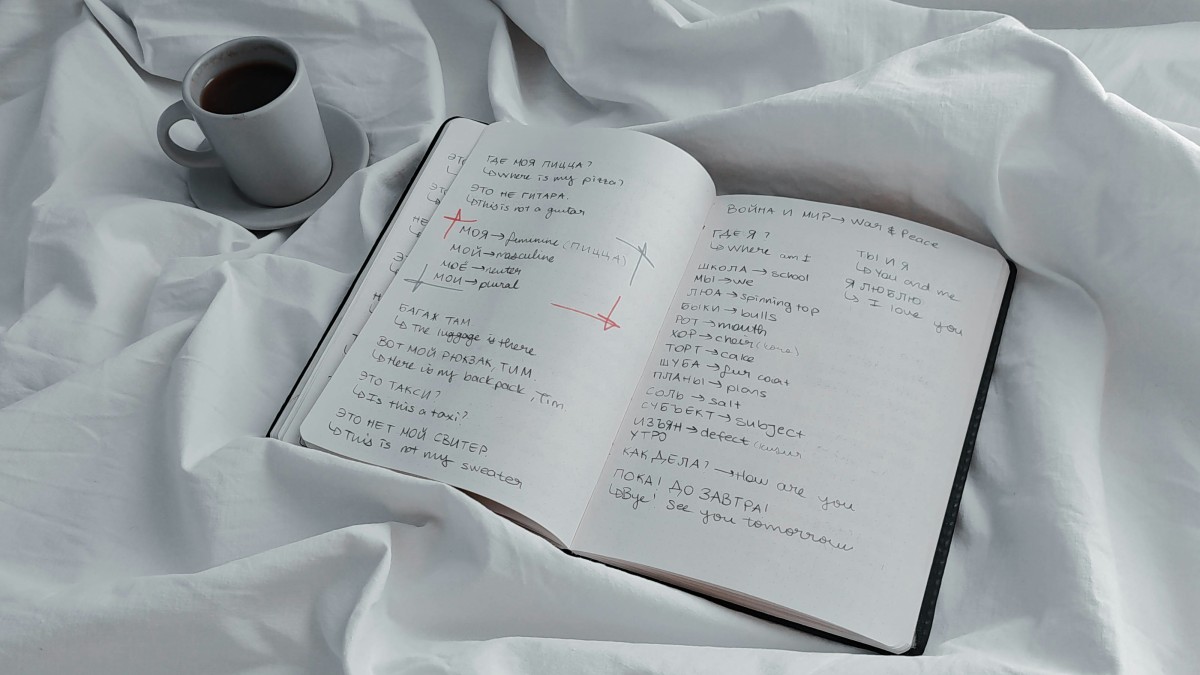 ЭТО
ГДЕ МОЯ ПИЦЦА?
↳Where is my pizza?
ЭТО НЕ ГИТАРА.
↳This is not a guitar
МОЯ→feminine (ПИЦЦА)
МОЙ→masculine
МОЁ→neuter
МОИ→plural
БАГАЖ ТАМ
↳The luggage is there
ВОТ МОЙ РЮКЗАК, ТИМ.
↳Here is my backpack, Tim
ЭТО ТАКСИ?
↳Is this a taxi?
ЭТО НЕТ МОЙ СВИТЕР.
↳This is not my sweater
ВОЙНА И МИР→War & Peace
ГДЕ Я?
↳Where am I
ШКОЛА→school
МЫ→we
ЮЛА→spinning top
БЫКИ→bulls
РОТ→mouth
ХОР→choir
ТОРТ→cake
ШУБА→fur coat
ПЛАНЫ→plans
СОЛЬ→salt
СУБЪЕКТ→subject
ИЗЪЯН→defect
УТРО
КАК ДЕЛА?→How are you
ПОКА! ДО ЗАВТРА!
↳Bye! See you tomorrow
ТЫ И Я
↳You and me
Я ЛЮБЛЮ
↳I love you